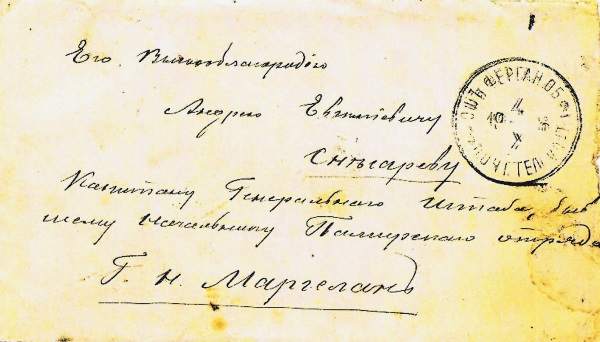 Его Высокоблагородію
Андрею Евгеніевичу
Снѣсареву
Капитану Генеральнаго Штаба, быв
шему Начальнику Памирскаго отряда
Г. Н. Маргеланъ
ОШЪ ФЕРГАН. ОБ.
4
X
ПОЧТ. ТЕЛ.